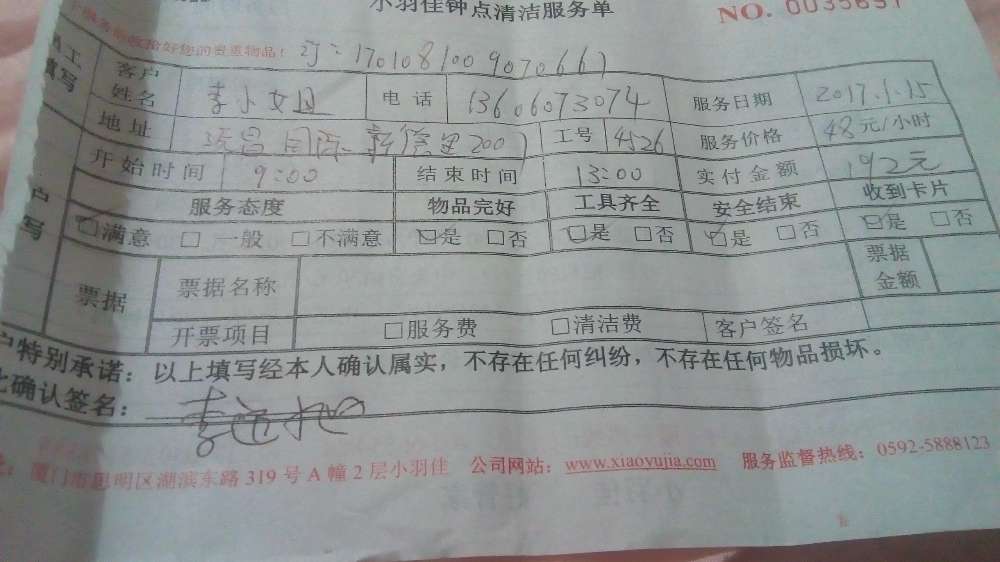 小羽佳钟点清洁服务单
NO. 0035651
收拾好您的贵重物品! 订:170108100907066
员工填写
客户姓名 李小姐 电话 13606073074 服务日期 2017.1.15
地址 国际新 里200 工号 4526 服务价格 48元/小时
开始时间 9:00 结束时间 13:00 实付金额 192元
服务态度 物品完好 工具齐全 安全结束 收到卡片
☑满意 □一般 □不满意 ☑是 □否 ☑是 □否 ☑是 □否 ☑是 □否
票据 票据名称 票据金额
开票项目 □服务费 □清洁费 客户签名
户特别承诺:以上填写经本人确认属实,不存在任何纠纷,不存在任何物品损坏。
此确认签名:
厦门市思明区湖滨东路319号A幢2层小羽佳 公司网站:www.xiaoyujia.com 服务监督热线:0592-5888123